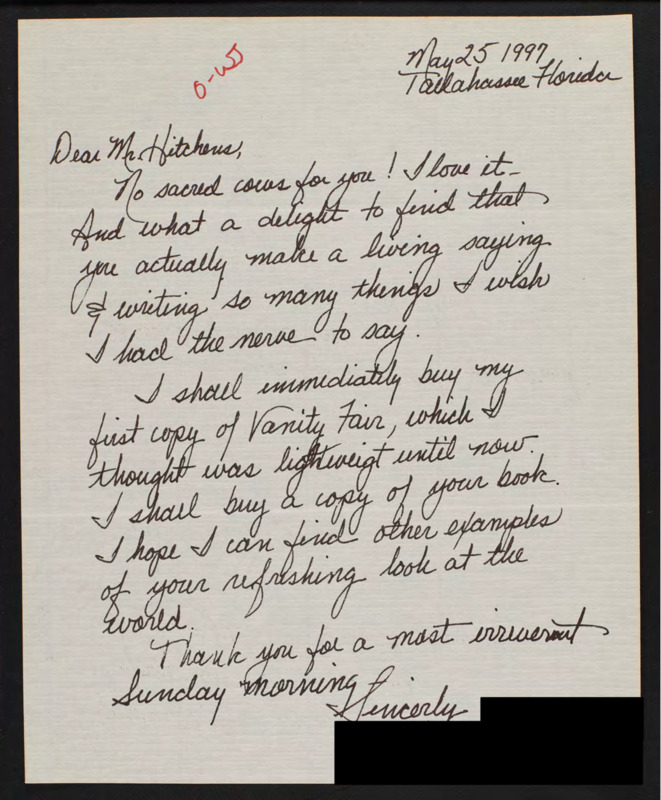 May 25 1997
Tallahassee Florida
Dear Mr. Hitchens,
No sacred cows for you! I love it-
And what a delight to find that
you actually make a living saying
& writing so many things I wish
I had the nerve to say.
I shall immediately buy my
first copy of Vanity Fair, which I
thought was lightweigt until now.
I shall buy a copy of your book.
I hope I can find other examples
of your refreshing look at the
world.
Thank you for a most irreverent
Sunday morning
Sincerly